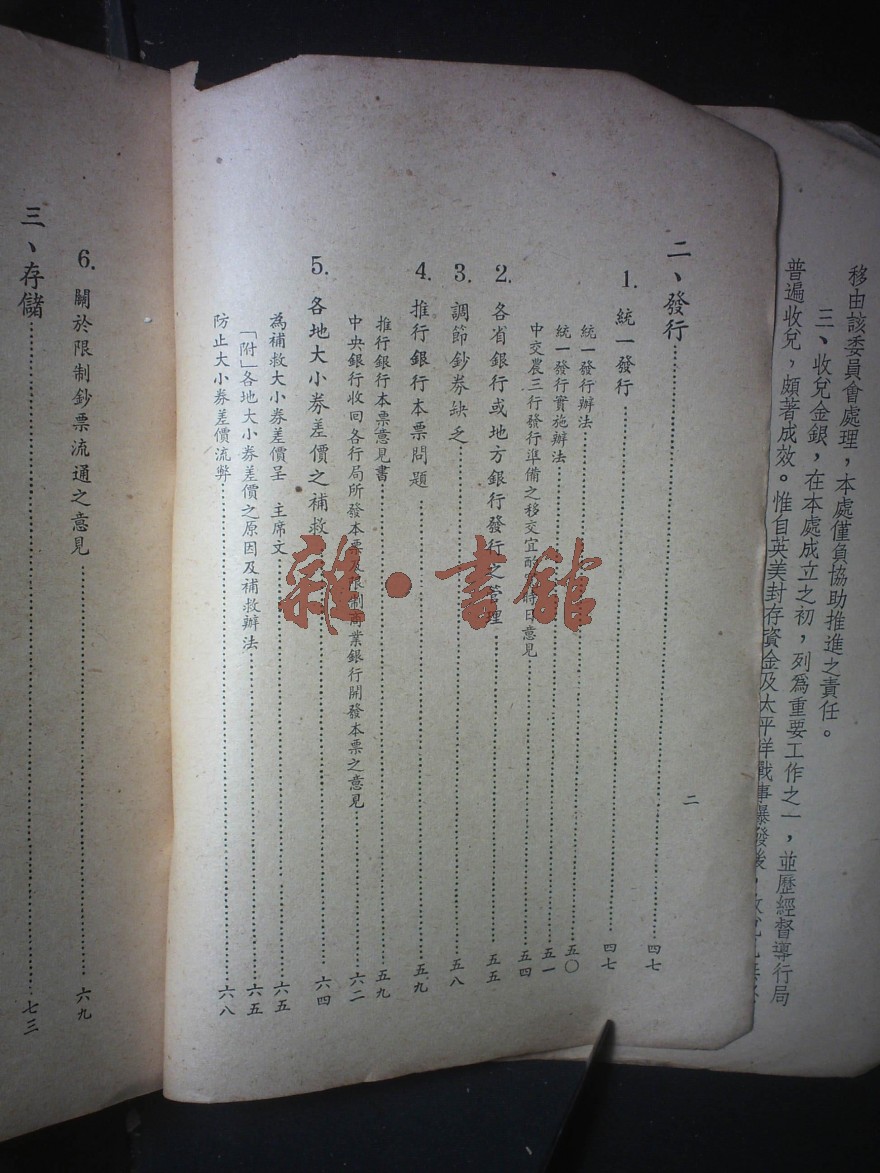 移由該委員會處理，本處僅負協助推進之責任。
三、收兌金銀，在本處成立之初，列爲重要工作之一，並歷經督導行局
普遍收兌，頗著成效。惟自英美封存資金及太平洋戰事爆發後，
二、發行……四七
1. 統一發行……四七
統一發行辦法……五〇
統一發行實施辦法……五一
中交農三行發行準備之移交宜酌 時日意見……五四
2. 各省銀行或地方銀行發行之管理……五五
3. 調節鈔券缺乏……五八
4. 推行銀行本票問題……五九
推行銀行本票意見書……五九
中央銀行收回各行局所發本票及限制商業銀行開發本票之意見……六二
5. 各地大小券差價之補救……六四
為補救大小券差價呈 主席文……六五
「附」各地大小券差價之原因及補救辦法……六五
防止大小券差價流弊……六八
二
6. 關於限制鈔票流通之意見……六九
三、存儲……七三
雜·書館